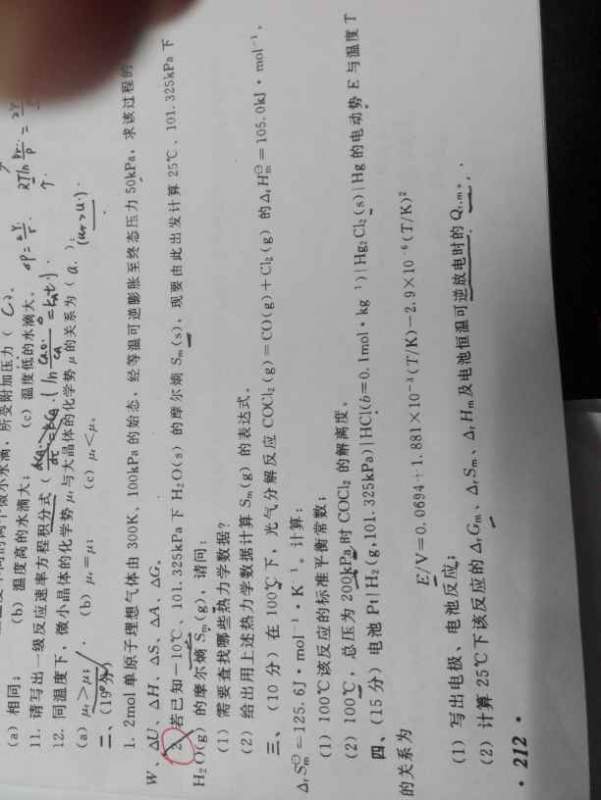 (a) 相同; (b) 温度高的水滴大; (c) 温度低的水滴大。
11. 请写出一级反应速率方程积分式(
12. 同温度下,微小晶体的化学势 μr 与大晶体的化学势 μ 的关系为( a. )。
(a) μr>μ; (b) μr=μ; (c) μr<μ。 (μr>μ).
二、(19分)
1. 2mol 单原子理想气体由 300K、100kPa 的始态,经等温可逆膨胀至终态压力 50kPa,求该过程的
W、ΔU、ΔH、ΔS、ΔA、ΔG。
2. 若已知-10℃、101.325kPa 下 H2O(s) 的摩尔熵 Sm(s),现要由此出发计算 25℃、101.325kPa 下
H2O(g) 的摩尔熵 Sm(g),请问:
(1) 需要查找哪些热力学数据?
(2) 给出用上述热力学数据计算 Sm(g) 的表达式。
三、(10分) 在 100℃ 下,光气分解反应 COCl2(g)=CO(g)+Cl2(g) 的 ΔrHm⊖=105.0kJ·mol-1,
ΔrSm⊖=125.6J·mol-1·K-1。计算:
(1) 100℃该反应的标准平衡常数;
(2) 100℃,总压为 200kPa 时 COCl2 的解离度。
四、(15分) 电池 Pt|H2(g,101.325kPa)|HCl(b=0.1mol·kg-1)|Hg2Cl2(s)|Hg 的电动势 E 与温度 T
的关系为
E/V=0.0694+1.881×10-3(T/K)-2.9×10-6(T/K)2
(1) 写出电极、电池反应;
(2) 计算 25℃下该反应的 ΔrGm、ΔrSm、ΔrHm 及电池恒温可逆放电时的 Qr,m。
· 212 ·